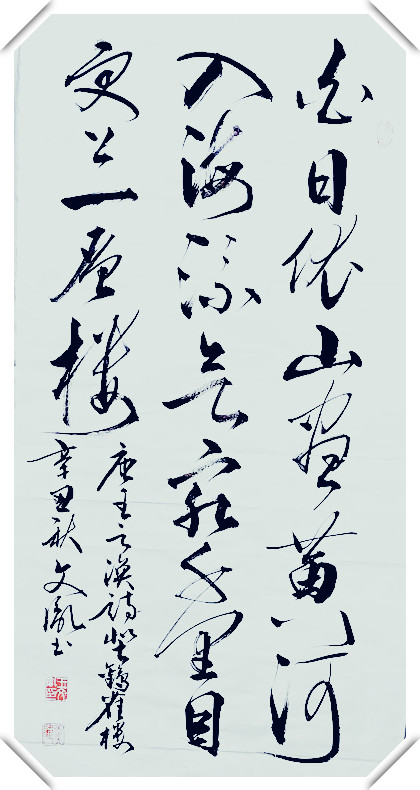 白日依山盡黄河
入海流欲穷千里目
更上一层楼
唐王之涣诗登鹳雀楼
辛丑秋文胤书